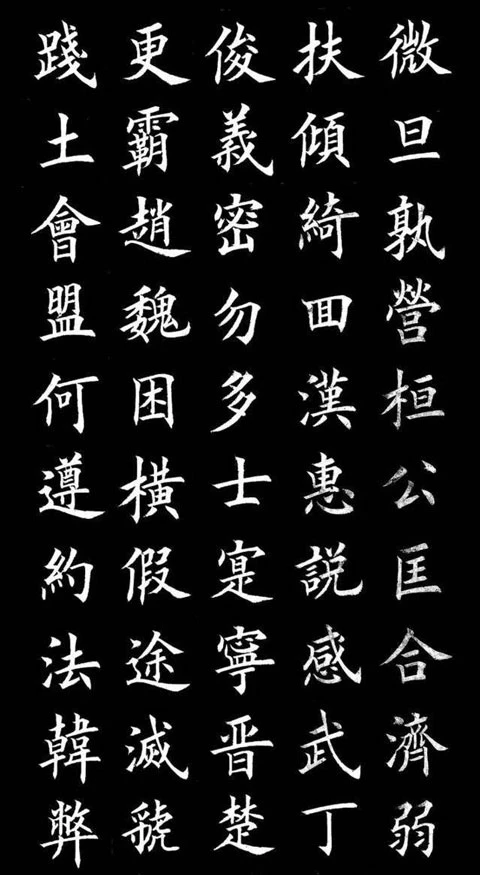 微旦孰營桓公匡合濟弱
扶傾綺回漢惠説感武丁
俊義密勿多士寔寧晉楚
更霸趙魏困橫假途滅虢
踐土會盟何遵約法韓弊